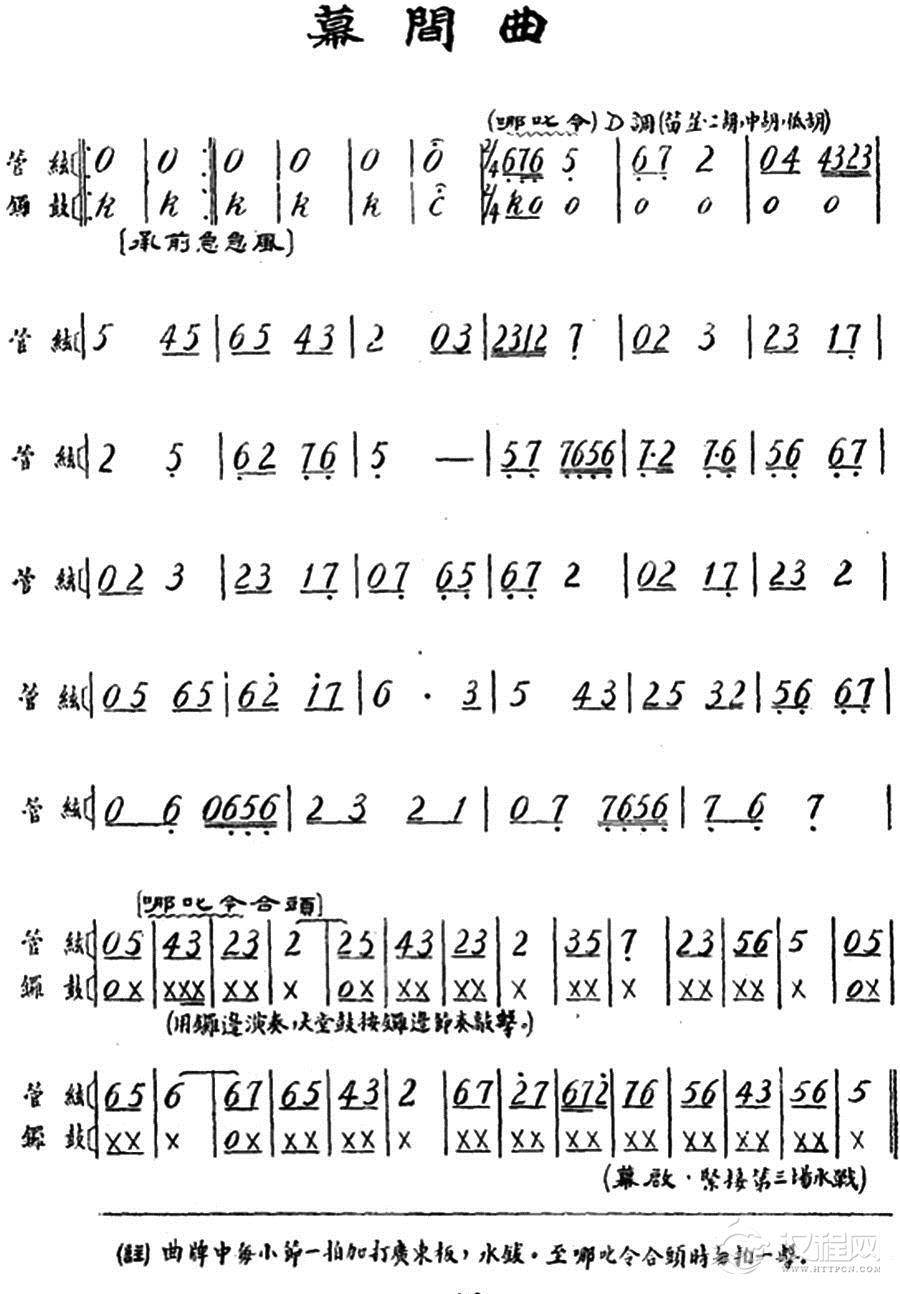 幕間曲
(哪叱令) D 調(笛笙·二胡·中胡·低胡)
管絃 0 | 0 | 0 | 0 | 0 | 0 | 2/4 676 5 | 67 2 | 04 4323 |
鑼鼓 k | k | k | k | k | c | 2/4 k0 0 | 0 0 | 0 0 |
[承前急急風]
管絃 5 45 | 65 43 | 2 03 | 2312 7 | 02 3 | 23 17 |
管絃 2 5 | 62 76 | 5 — | 57 7656 | 7·2 7·6 | 56 67 |
管絃 02 3 | 23 17 | 07 65 | 67 2 | 02 17 | 23 2 |
管絃 05 65 | 62 17 | 6 · 3 | 5 43 | 25 32 | 56 67 |
管絃 0 6 0656 | 2 3 2 1 | 0 7 7656 | 7 6 7 |
[哪叱令合頭]
管絃 05 | 43 | 23 | 2 | 25 | 43 | 23 | 2 | 35 | 7 | 23 | 56 | 5 | 05
鑼鼓 0X | XXX | XX | X | 0X | XX | XX | X | XX | X | XX | XX | X | 0X
(用鑼邊演奏,大堂鼓按鑼邊節奏敲擊。)
管絃 65 | 6 | 67 | 65 | 43 | 2 | 67 | 27 | 672 | 76 | 56 | 43 | 56 | 5
鑼鼓 XX | X | 0X | XX | XX | X | XX | XX | XX | XX | XX | XX | XX | X
(幕啟·緊接第三場水戰)
(註) 曲牌中每小節一拍加打廣東板,水鈸。至哪叱令合頭時每拍一擊。
汉程网
WWW.HTTPCN.COM